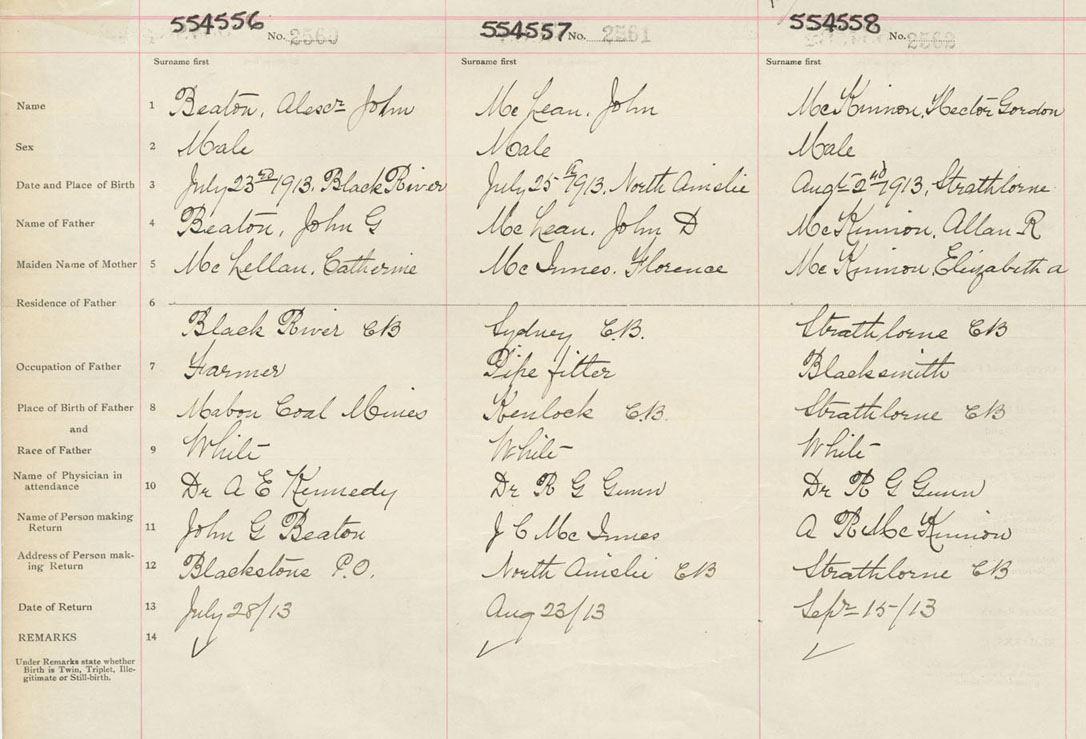 554556 No. 2560 554557 No. 2561 554558 No. 2562
Surname first Surname first Surname first
Name 1 Beaton, Alexr John McLean, John McKinnon, Hector Gordon
Sex 2 Male Male Male
Date and Place of Birth 3 July 23rd 1913, Black River July 25th 1913, North Ainslie Augt 2nd 1913, Strathlorne
Name of Father 4 Beaton, John G McLean, John D McKinnon, Allan R
Maiden Name of Mother 5 McLellan, Catherine McInnes, Florence McKinnon, Elizabeth A
Residence of Father 6
Black River CB Sydney C.B. Strathlorne CB
Occupation of Father 7 Farmer Pipe fitter Blacksmith
Place of Birth of Father 8 Mabou Coal Mines Kenlock C.B. Strathlorne CB
and
Race of Father 9 White White White
Name of Physician in
attendance 10 Dr A E Kennedy Dr R G Gunn Dr R G Gunn
Name of Person making
Return 11 John G Beaton J C McInnes A R McKinnon
Address of Person mak-
ing Return 12 Blackstone P.O. North Ainslie CB Strathlorne CB
Date of Return 13 July 28/13 Aug 23/13 Sepr 15/13
REMARKS 14 ✓ ✓ ✓
Under Remarks state whether
Birth is Twin, Triplet, Ille-
gitimate or Still-birth.